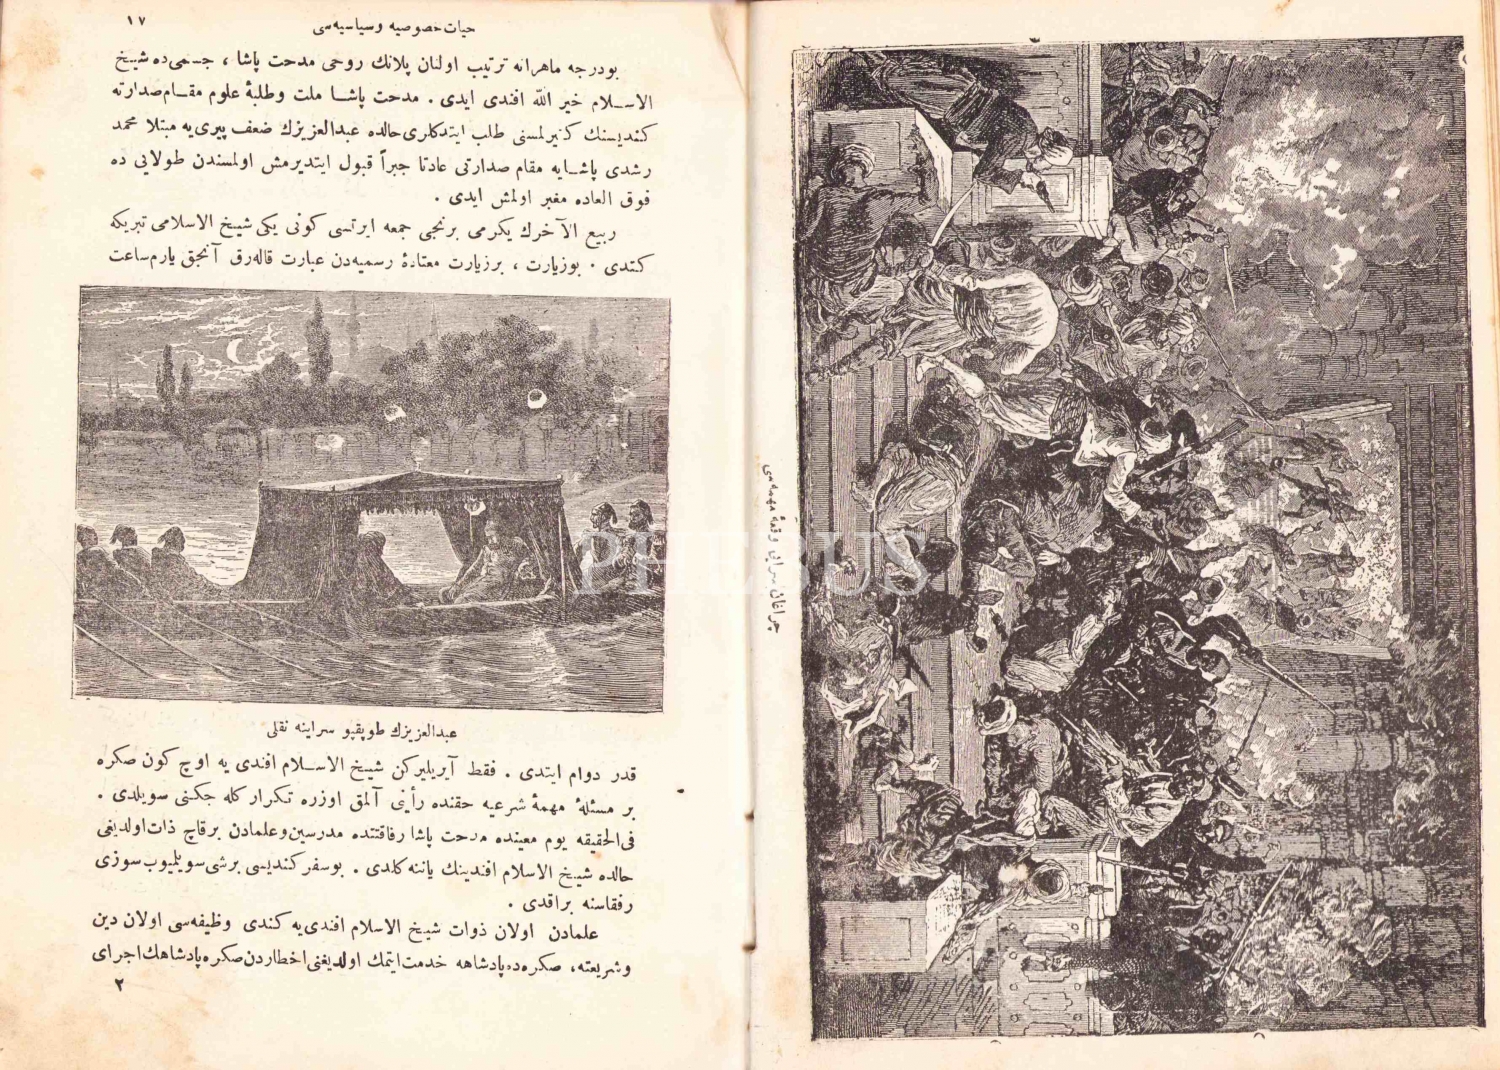 حيات خصوصيه و سياسيه‌سى
١٧
بودرجه ماهرانه ترتيب اولنان پلانك روحى مدحت پاشا ، جسمى ده شيخ
الاسلام خير الله افندى ايدى . مدحت پاشا ملت وطلبۀ علوم مقام صدارته
كنديسنك كتيرلمسنى طلب ايتدكلرى حالده عبدالعزيزك ضعف پيرى يه مبتلا محمد
رشدى پاشايه مقام صدارتى عادتا جبراً قبول ايتديرمش اولمسندن طولايى ده
فوق العاده مغبر اولمش ايدى .
ربيع الآخرك يكرمى برنجى جمعه ايرتسى كونى يكى شيخ الاسلامى تبريكه
كتدى . بوزيارت ، برزيارت معتادۀ رسميه‌دن عبارت قاله‌رق آنجق يارم ساعت
عبدالعزيزك طوپقپو سراينه نقلى
قدر دوام ايتدى . فقط آيريليركن شيخ الاسلام افندى يه اوچ كون صكره
بر مسئلۀ مهمۀ شرعيه حقنده رأينى آلمق اوزره تكرار كله جكنى سويلدى .
فى الحقيقه يوم معينده مدحت پاشا رفاقتنده مدرسين و علمادن برقاچ ذات اولديغى
حالده شيخ الاسلام افندينك ياننه كلدى . بوسفر كنديسى برشى سويليوب سوزى
رفقاسنه براقدى .
علمادن اولان ذوات شيخ الاسلام افندى يه كندى وظيفه‌سى اولان دين
وشريعته، صكره ده پادشاهه خدمت ايتمك اولديغنى اخطاردن صكره پادشاهك اجراى
٢
چراغان سرايى وقعۀ مهمه‌سى
PHEBUS